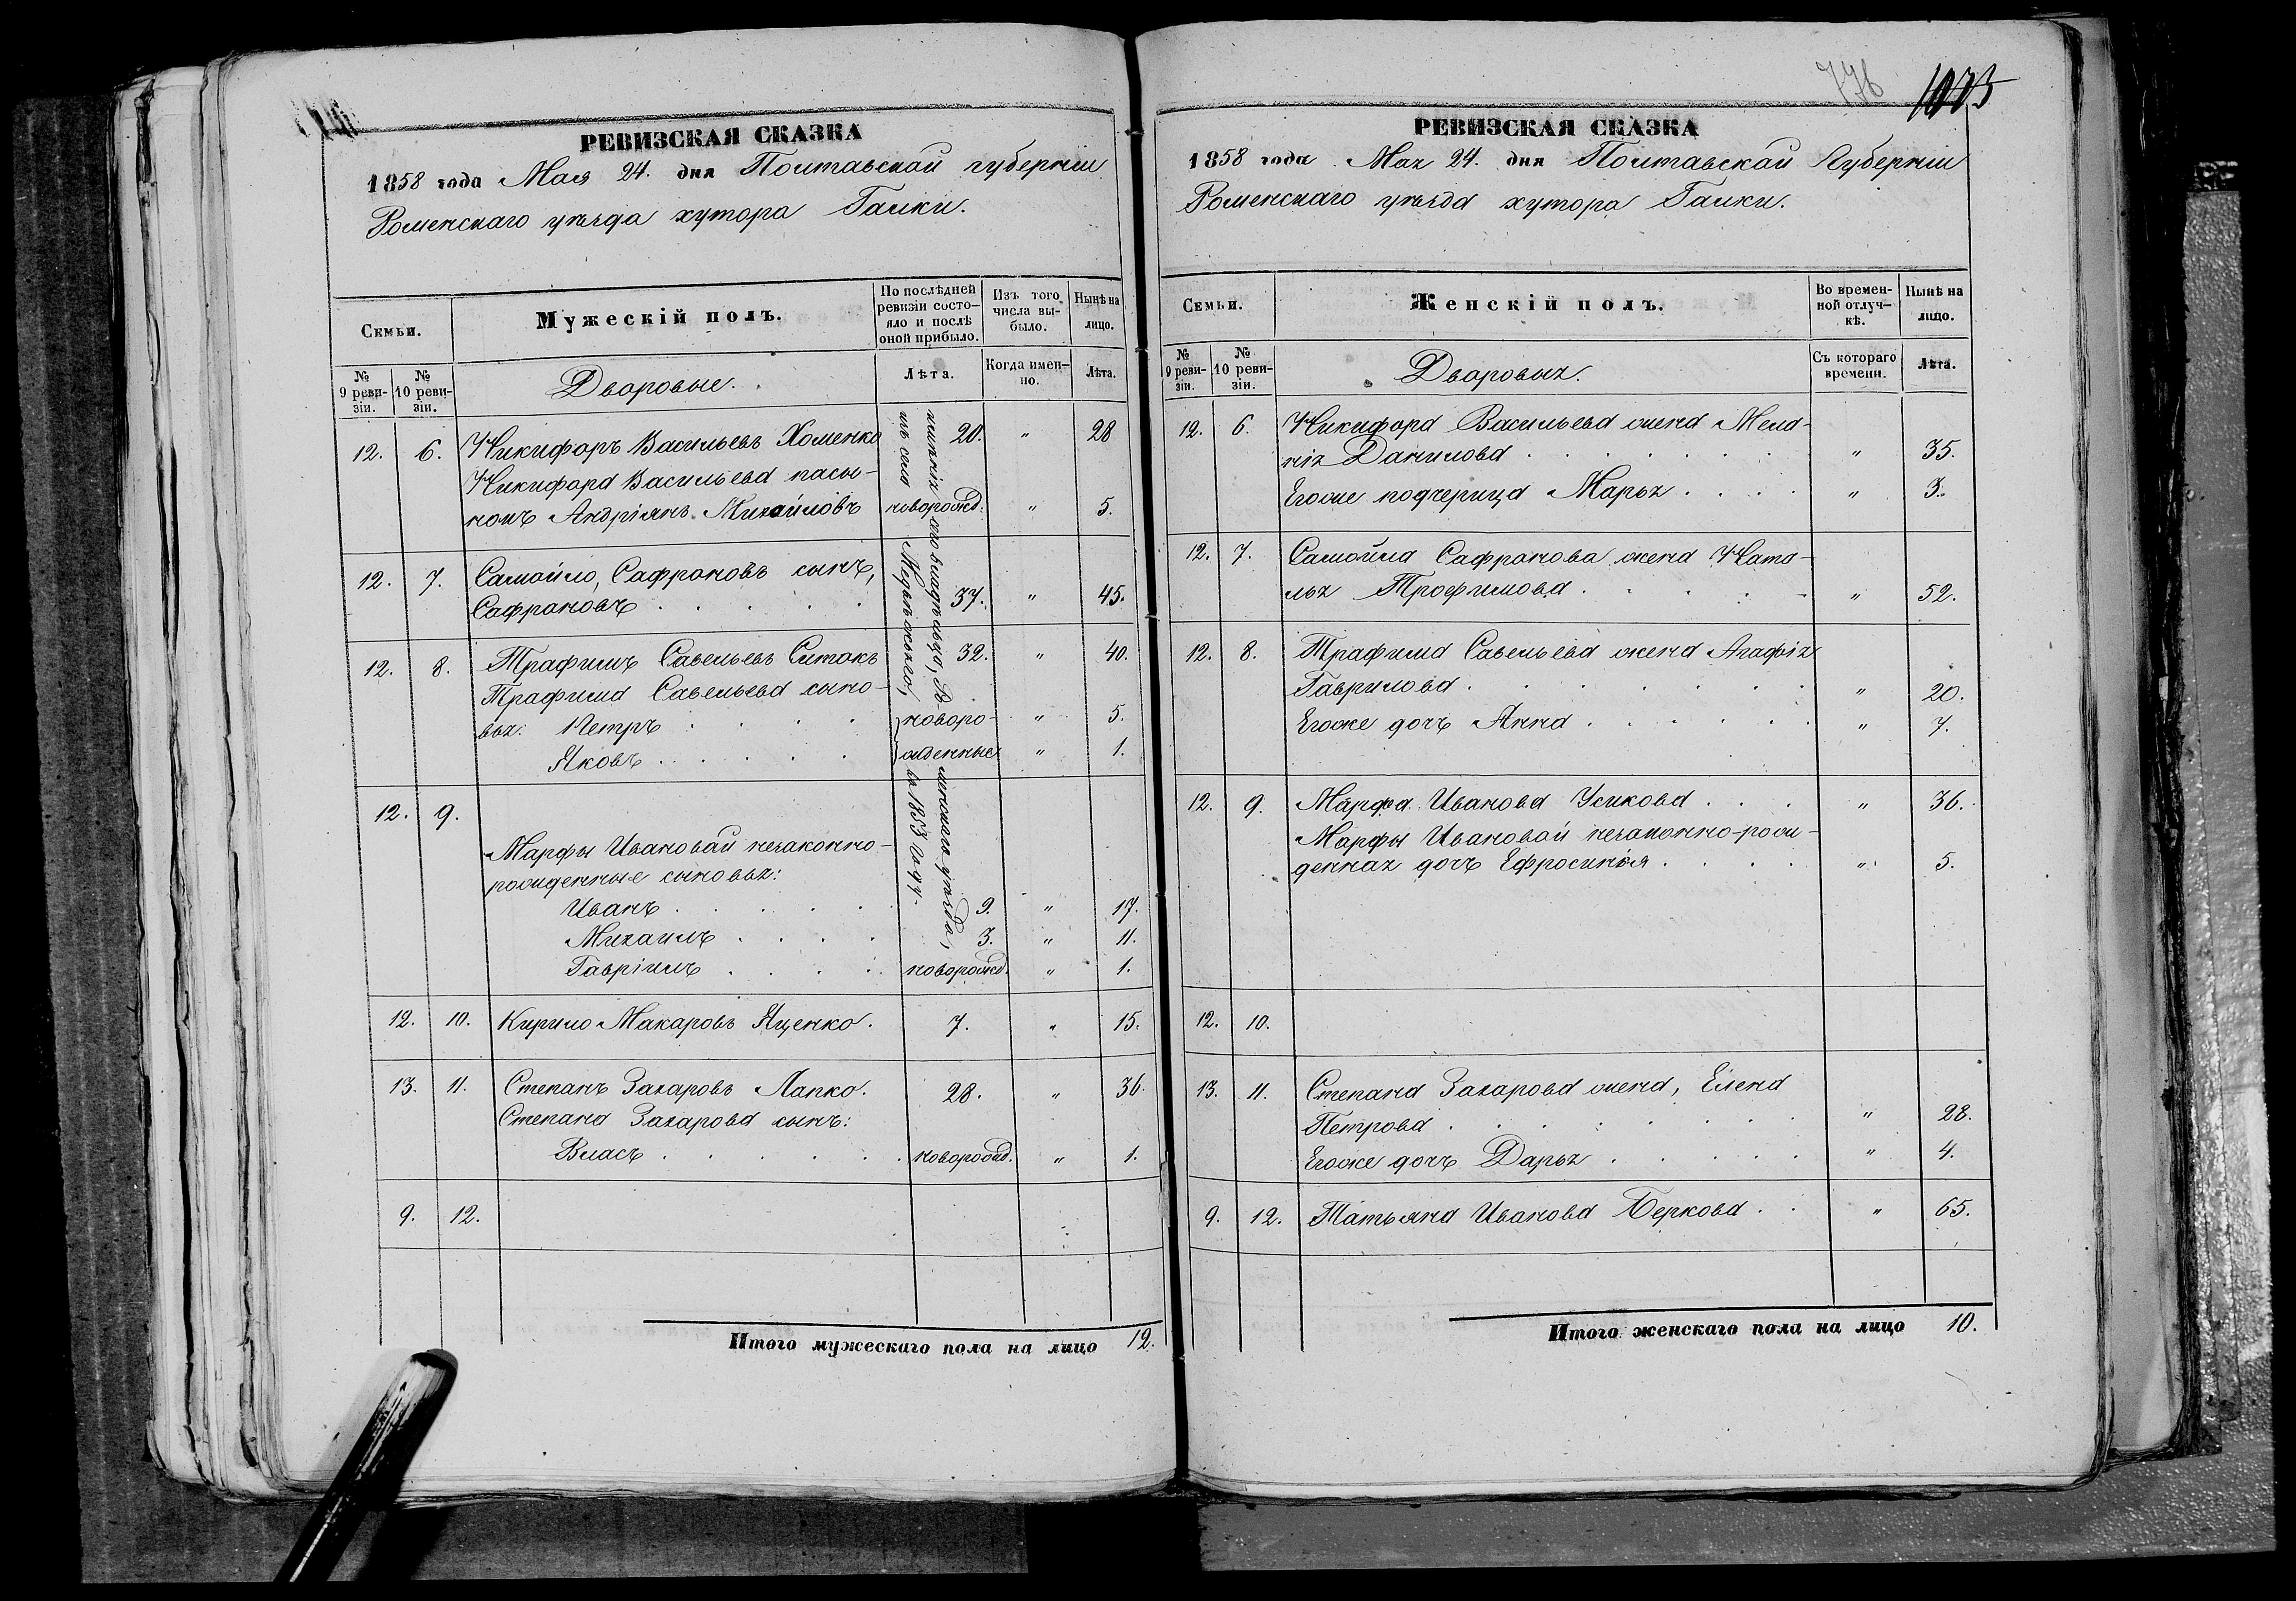 РЕВИЗСКАЯ СКАЗКА
1858 года Мая 24. дня Полтавской губерніи
Роменскаго уѣзда хутора Галки.
Семьи.
Мужескій полъ.
По послѣдней ревизіи состояло и послѣ оной прибыло.
Изъ того числа выбыло.
Нынѣ на лицо.
№ 9 ревизіи.
№ 10 ревизіи.
Дворовые.
Лѣта.
Когда именно.
Лѣта.
12. 6. Никифоръ Васильевъ Хоменко 20. " 28
Никифора Васильева пасы-
нокъ Андріянъ Михайловъ новорожд. " 5.
12. 7. Самойло, Сафроновъ сынъ,
Сафроновъ . . . . . 37. " 45.
12. 8. Трафимъ Савельевъ Ситокъ 32. " 40.
Трафима Савельева сыно-
вья: Петръ . . . . новоро- " 5.
Яковъ . . . . . жденные " 1.
12. 9.
Марфы Ивановой незаконно-
рожденные сыновья:
Иванъ . . . . . . 9. " 17.
Михаилъ . . . . 3. " 11.
Гавріилъ . . . . новорожд. " 1.
12. 10. Кирило Макаровъ Яценко. 7. " 15.
13. 11. Степанъ Захаровъ Лапко. 28. " 36.
Степана Захарова сынъ:
Власъ . . . . . . новорожд. " 1.
9. 12.
Итого мужескаго пола на лицо 12.
имѣнія сего владѣльца, Ро
менскаго уѣзда,
изъ села
въ 1853 году.
776
1073
РЕВИЗСКАЯ СКАЗКА
1858 года Мая 24. дня Полтавской Губерніи
Роменскаго уѣзда хутора Галки.
Семьи.
Женскій полъ.
Во временной отлучкѣ.
Нынѣ на лицо.
№ 9 ревизіи.
№ 10 ревизіи.
Дворовыя.
Съ котораго времени.
Лѣта.
12. 6. Никифора Васильева жена Мела-
нія Данилова . . . . . . . " 35.
Егоже подчерица Марья . . . . " 3.
12. 7. Самойла Сафронова жена Ната-
лья Трофимова . . . . . " 52.
12. 8. Трафима Савельева жена Агафія
Гаврилова . . . . . . . " 20.
Егоже дочь Анна . . . . . . " 7.
12. 9. Марфа Иванова Усикова . . . " 36.
Марфы Ивановой незаконно-рож-
денная дочь Ефросинія . . . . " 5.
12. 10.
13. 11. Степана Захарова жена, Елена
Петрова . . . . . . . . " 28.
Егоже дочь Дарья . . . . . " 4.
9. 12. Татьяна Иванова Беркова . . " 65.
Итого женскаго пола на лицо 10.